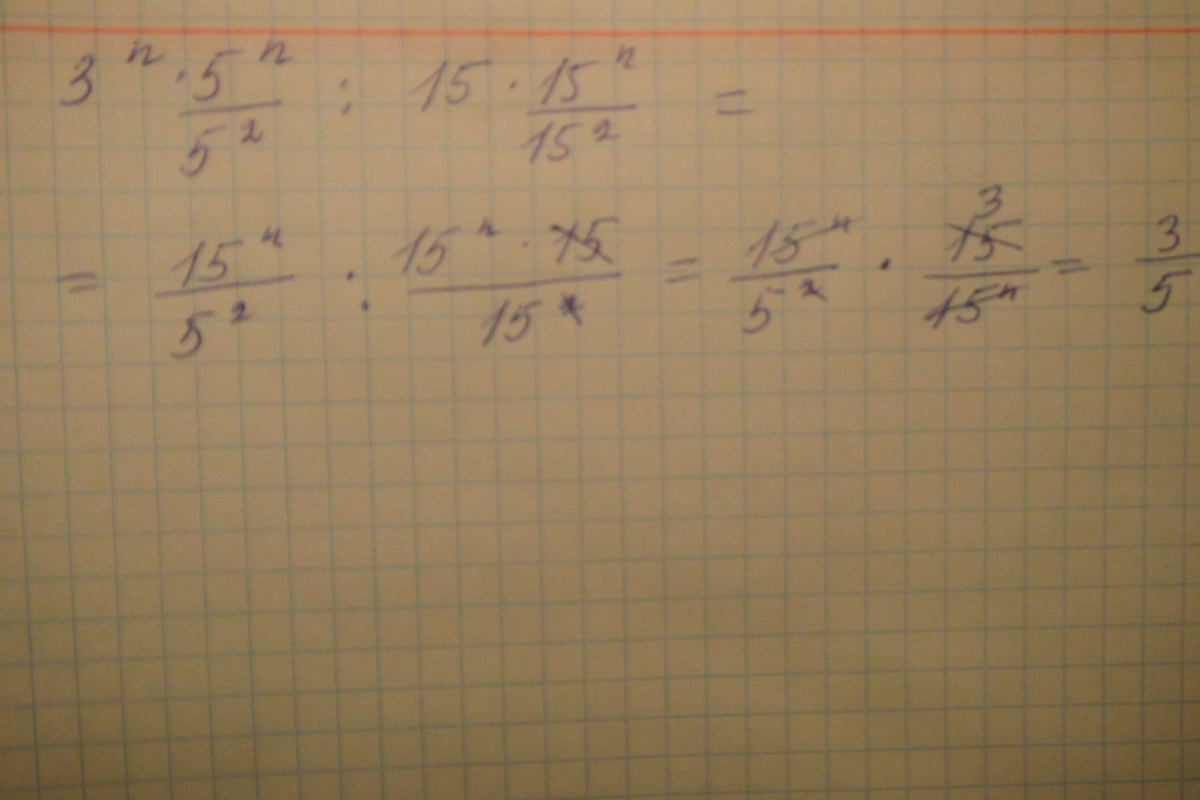 3^n · 5^n/5^2 : 15 · 15^n/15^2 =
= 15^n/5^2 : 15^n · 15/15^2 = 15^n/5^2 · 15/15^n = 3/5